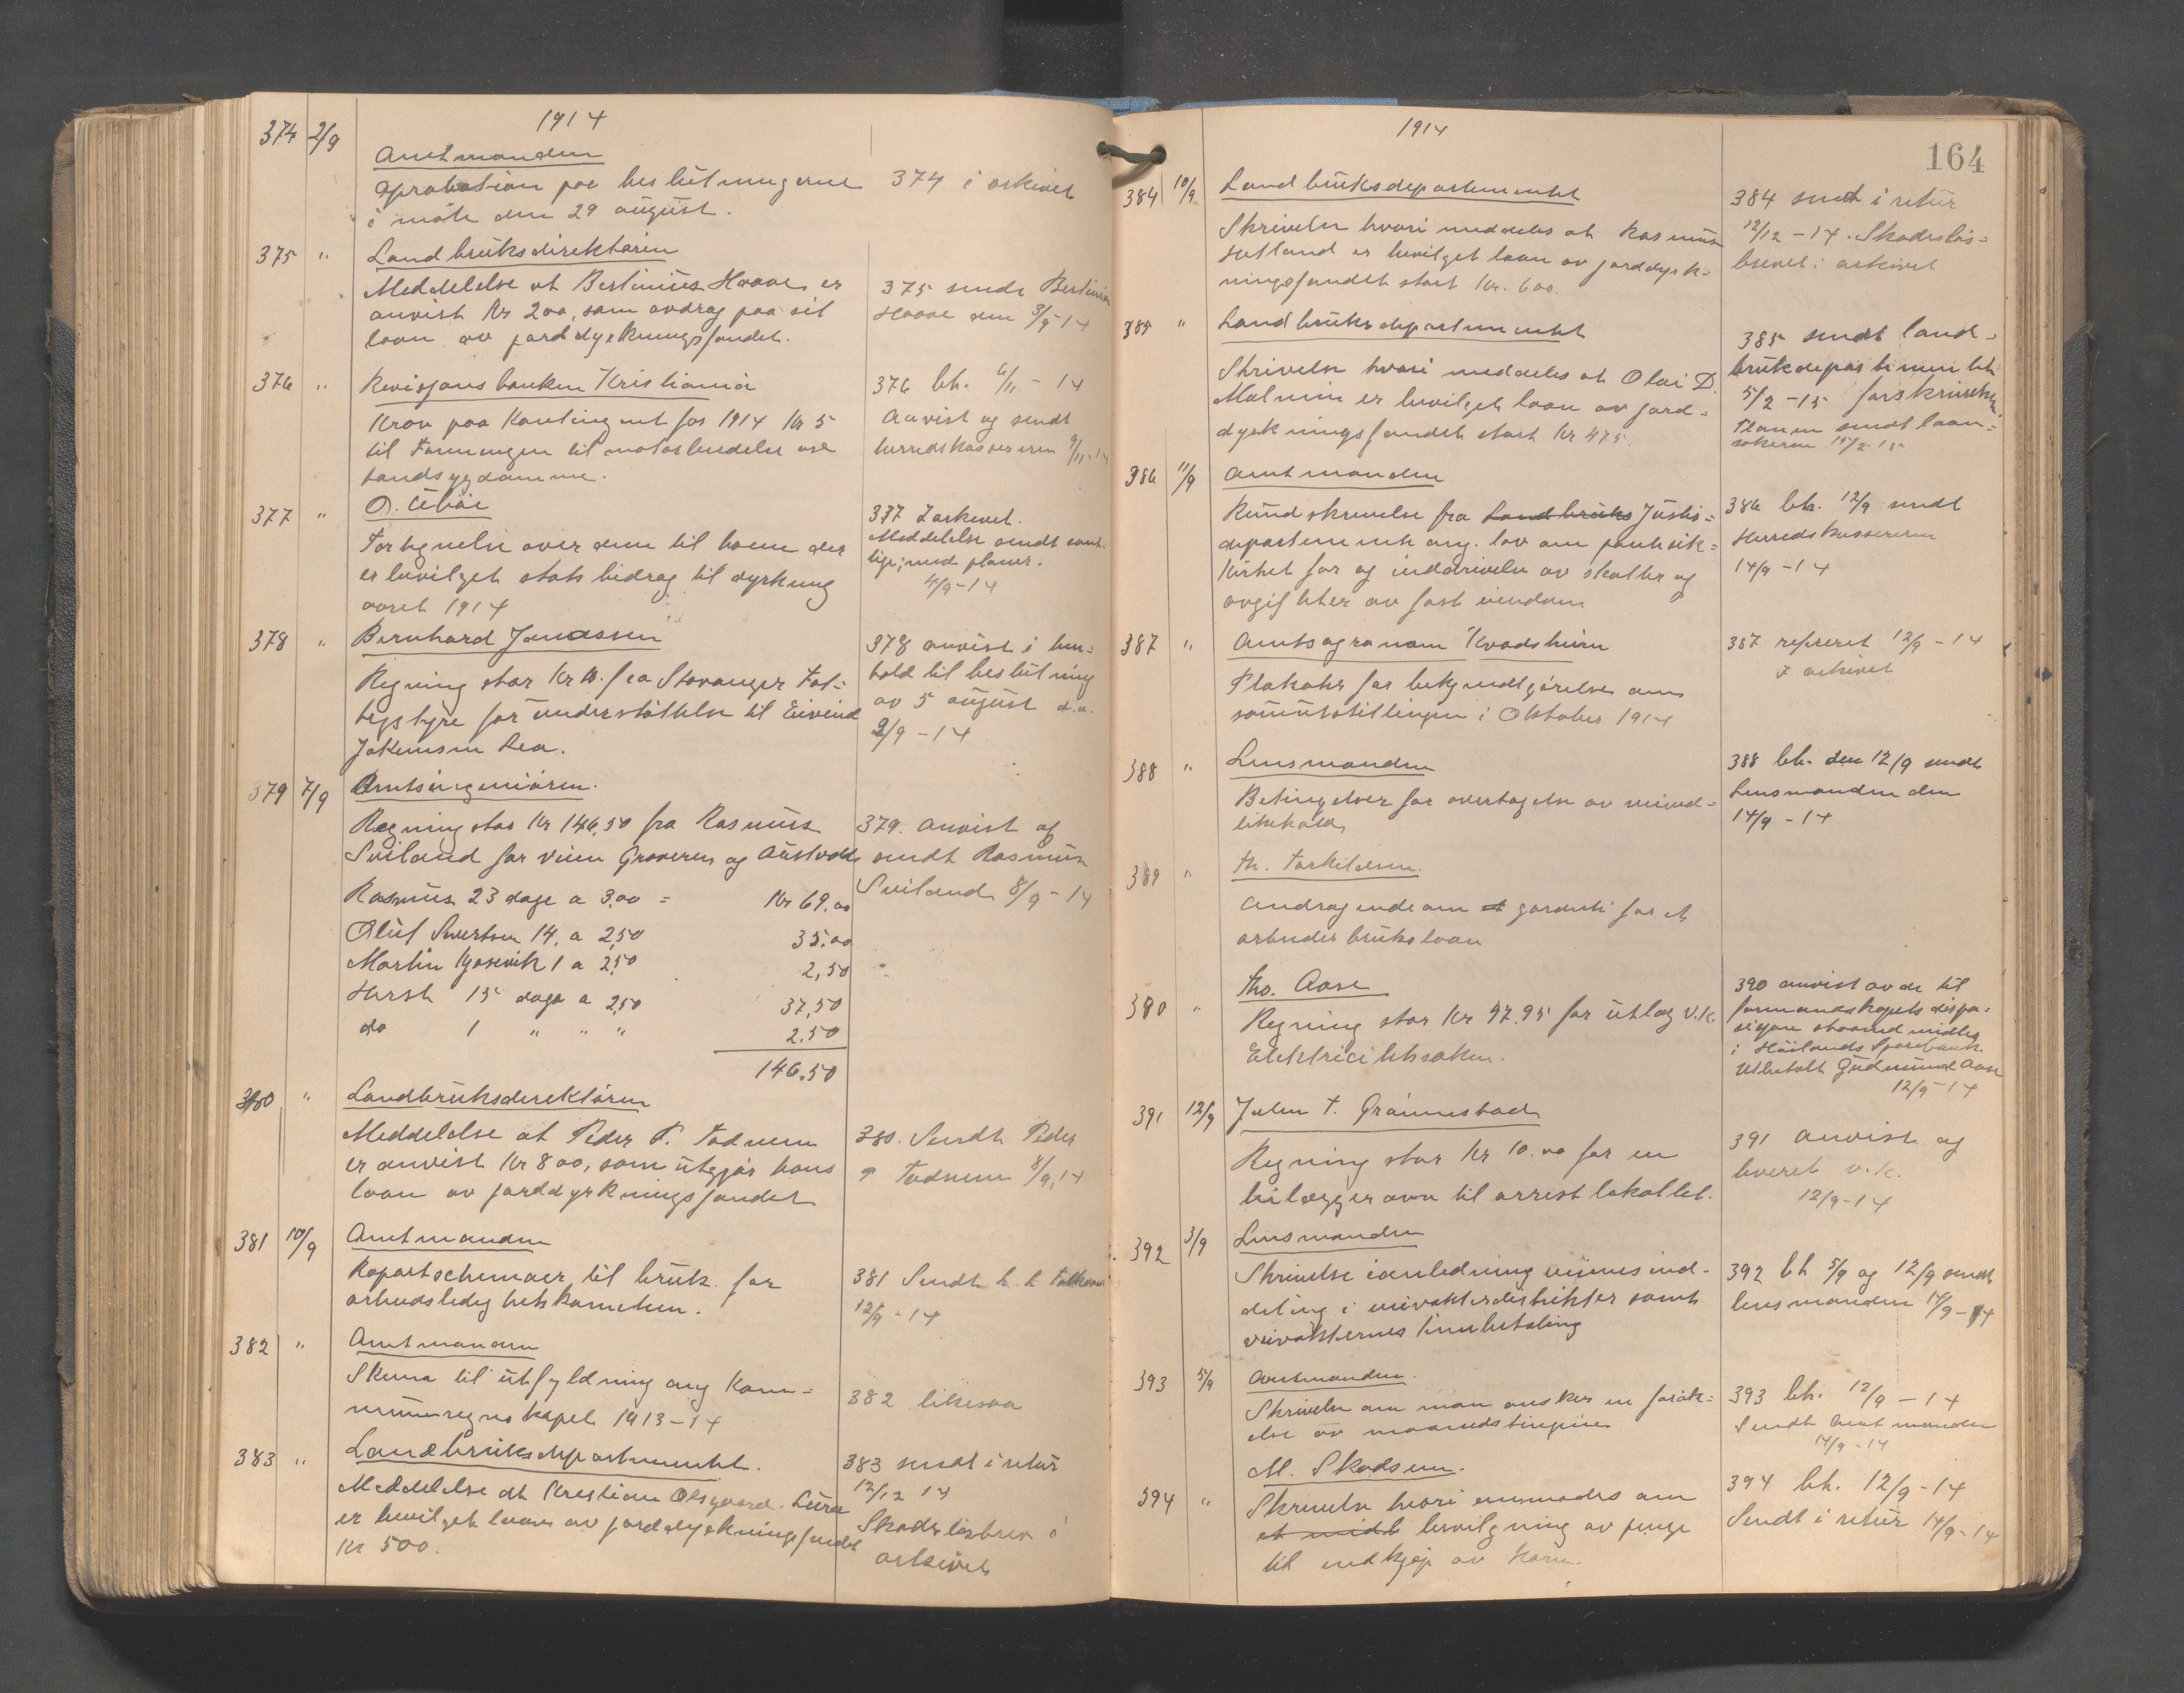 1914
374 2/9 Amtmanden
Aprobation paa beslutningerne
i møte den 29 august.
374 i arkivet
375 " Landbruksdirektøren
Meddelelse at Bertinius Haave er
anvist Kr 200, som avdrag paa sit
laan av jorddyrkningsfondet.
375 sendt Bertinius
Haave den 3/9-14
376 " Kristiania
Krav paa Kontingent for 1914 Kr 5
til Foreningen til motarbeidelse av
tandsygdomme.
376 bh. 6/11-14
Anvist og sendt
herredskassereren 9/11-14
377 "
Fortegnelse over dem til hvem der
er bevilget statsbidrag til dyrkning
aaret 1914
377 I arkivet.
Meddelelse sendt samt-
lige, med planer.
4/9-14
378 " Bernhard Jonassen
Regning stor Kr fra Stavanger Fat-
tigstyre for understøttelse til Eivind
Jakobsen Rea.
378 anvist i hen-
hold til beslutning
av 5 august d.a.
2/9-14
379 7/9 Amtsingeniøren.
Regning stor Kr 146,50 fra Rasmus
Sviland for veien Graveren og Austvoll
Rasmus 23 dage a 3,00 = Kr 69,00
Oluf Sivertsen 14, a 2,50 35,00
Martin 1 a 2,50 2,50
15 dage a 2,50 37,50
do 1 " " " 2.50
146.50
379. Anvist og
sendt Rasmus
Sviland 8/9-14
380 " Landbruksdirektøren
Meddelelse at Peder P. Todnem
er anvist Kr 800, som utgjør hans
laan av jorddyrkningsfondet
380. Sendt Peder
P Todnem 8/9.14
381 10/9 Amtmanden
Raportschemaer til bruk for
arbeidsledighetskomiteen.
381 Sendt
12/9-14
382 " Amtmanden
Skema til utfyldning ang kom-
muneregnskapet 1913-14
382 likesaa
383 " Landbruksdepartementet.
Meddelelse at Kristian Olsgaard. Lura
er bevilget laan av jorddyrkningsfondet
Kr 500.
383 sendt i retur
12/12 14
Skadesløsbrev i
arkivet
1914
164
384 10/9 Landbruksdepartementet
Skrivelse hvori meddeles at Rasmus
Hetland er bevilget laan av jorddyrk-
ningsfondet stort Kr. 600.
384 sendt i retur
12/12-14. Skadesløs-
brevet i arkivet
385 " Landbruksdepartementet
Skrivelse hvori meddeles at Olai D.
Malmin er bevilget laan av jord-
dyrkningsfondet stort Kr 475.
385 sendt land-
bruksdepartementet
5/2-15 forskrivelsen,
Planen sendt laan-
søkeren 15/2-15
386 11/9 Amtmanden
Rundskrivelse fra Landbruks Justis-
departementet ang. lov om pantesik-
kerhet for og inddrivelse av skatter og
avgifter av fast eiendom
386 bh. 12/9 sendt
Herredskassereren
14/9-14
387 " Amtsagronom Kvadsheim
Plakater for bekjendtgjørelse om
saueutstillingen i Oktober 1914
387 refereret 12/9-14
I arkivet
388 " Lensmanden
Betingelser for overtagelse av veived-
likehold
388 bh. den 12/9 sendt
Lensmanden den
14/9-14
389 " Th. Torkildsen.
Andragende om et garanti for et
arbeiderbrukslaan
390 " Tho. Aase
Regning stor Kr 97.95 for utlæg v.k.
Elektricitetssaken.
390 anvist av de til
formandskapets dispo-
sisjon staaende midler
i Høilands Sparebank.
Utbetalt Gudmund Aase
12/9-14
391 12/9 Julen T. Grønnestad
Regning stor Kr 10.00 for en
bilæggerovn til arrestlokallet.
391 anvist og
leveret v.k.
12/9-14
392 3/9 Lensmanden
Skrivelse ianledning veienes ind-
deling i veivokterdistrikter samt
veivokternes lønbetaling
392 bh 5/9 og 12/9 sendt
lensmanden 14/9-14
393 5/9 Amtmanden.
Skrivelse om man ønsker en forøk-
else av maanedstingene
393 bh. 12/9-14
Sendt Amtmanden
14/9-14
394 " M. Skadsem.
Skrivelse hvori anmodes om
et midl bevilgning av penge
til indkjøp av korn.
394 bh. 12/9-14
Sendt i retur 14/9-14